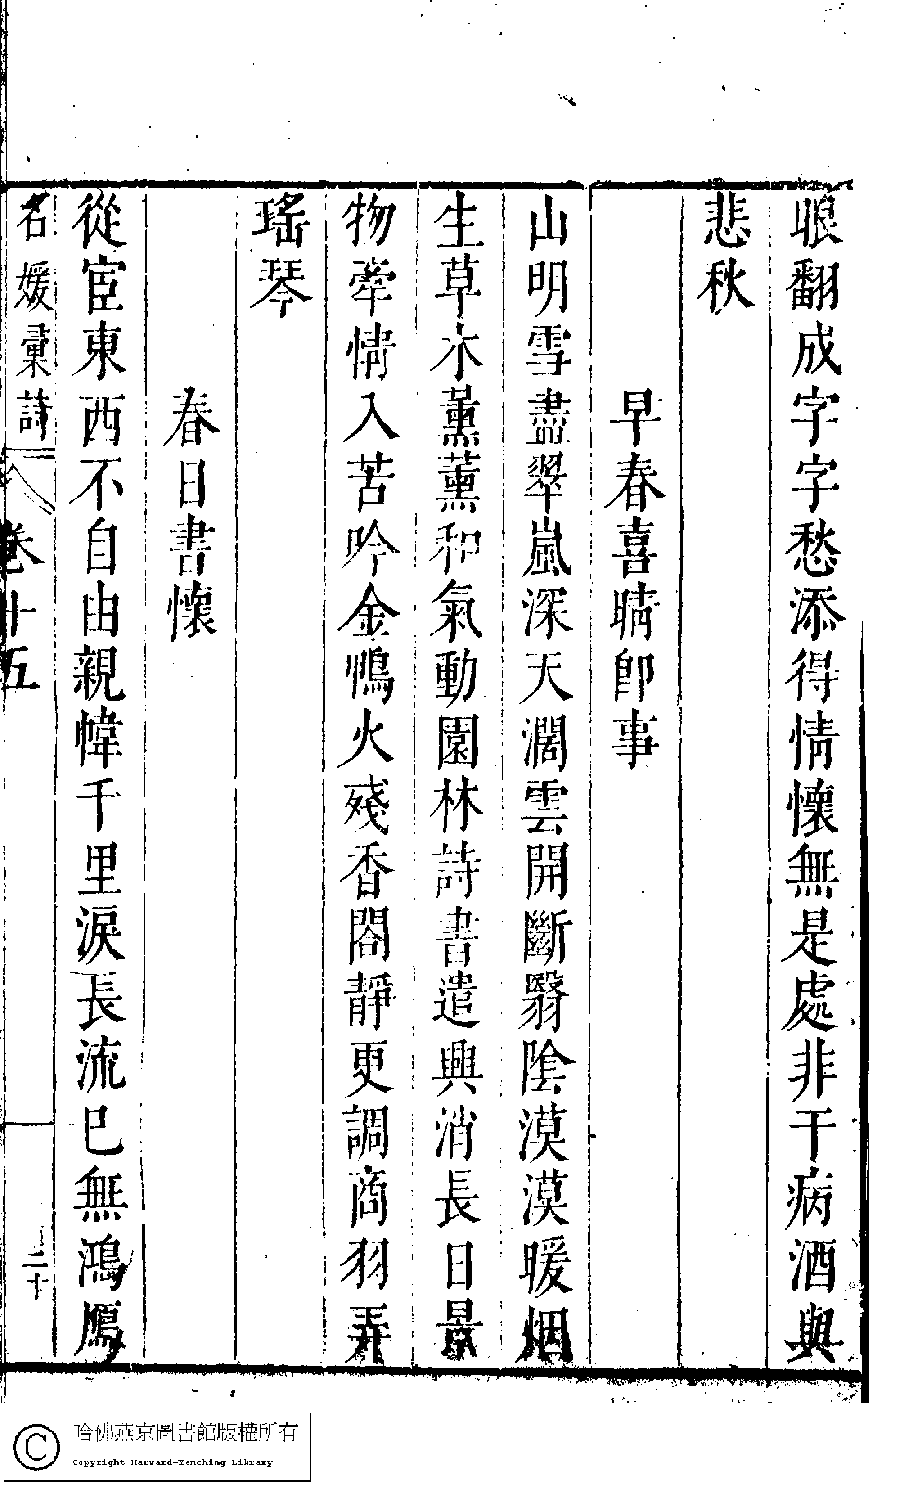 眼翻成字字愁添得情懷無是處非干病酒與
悲秋
早春喜晴卽事
山明雪盡翠嵐深天濶雲開斷翳陰漠漠暖烟
生草木薰薰和氣動園林詩書遣興消長日景
物牽情入苦吟金鴨火殘香閣靜更調商羽弄
瑤琴
春日書懷
從宦東西不自由親幃千里淚長流已無鴻鴈
名媛彙詩 卷十五 二十
哈佛燕京圖書館版權所有
Copyright Harvard-Yenching Library